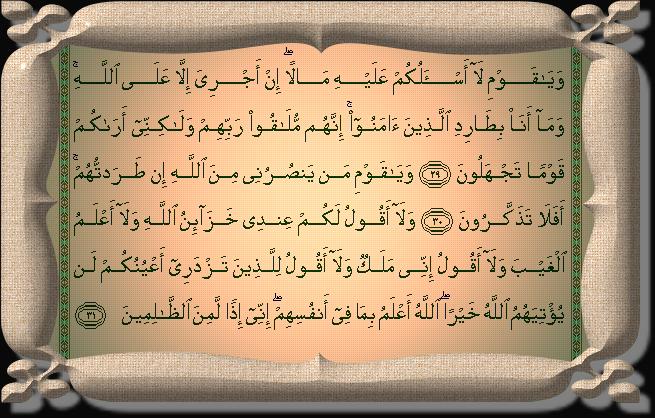 وَيَـٰقَوْمِ لَآ أَسْـَٔلُكُمْ عَلَيْهِ مَالًا ۖ إِنْ أَجْرِىَ إِلَّا عَلَى ٱللَّهِ ۚ
وَمَآ أَنَا۠ بِطَارِدِ ٱلَّذِينَ ءَامَنُوٓا۟ ۚ إِنَّهُم مُّلَـٰقُوا۟ رَبِّهِمْ وَلَـٰكِنِّىٓ أَرَىٰكُمْ
قَوْمًا تَجْهَلُونَ ٢٩ وَيَـٰقَوْمِ مَن يَنصُرُنِى مِنَ ٱللَّهِ إِن طَرَدتُّهُمْ ۚ
أَفَلَا تَذَكَّرُونَ ٣٠ وَلَآ أَقُولُ لَكُمْ عِندِى خَزَآئِنُ ٱللَّهِ وَلَآ أَعْلَمُ
ٱلْغَيْبَ وَلَآ أَقُولُ إِنِّى مَلَكٌ وَلَآ أَقُولُ لِلَّذِينَ تَزْدَرِىٓ أَعْيُنُكُمْ لَن
يُؤْتِيَهُمُ ٱللَّهُ خَيْرًا ۖ ٱللَّهُ أَعْلَمُ بِمَا فِىٓ أَنفُسِهِمْ ۖ إِنِّىٓ إِذًا لَّمِنَ ٱلظَّـٰلِمِينَ ٣١